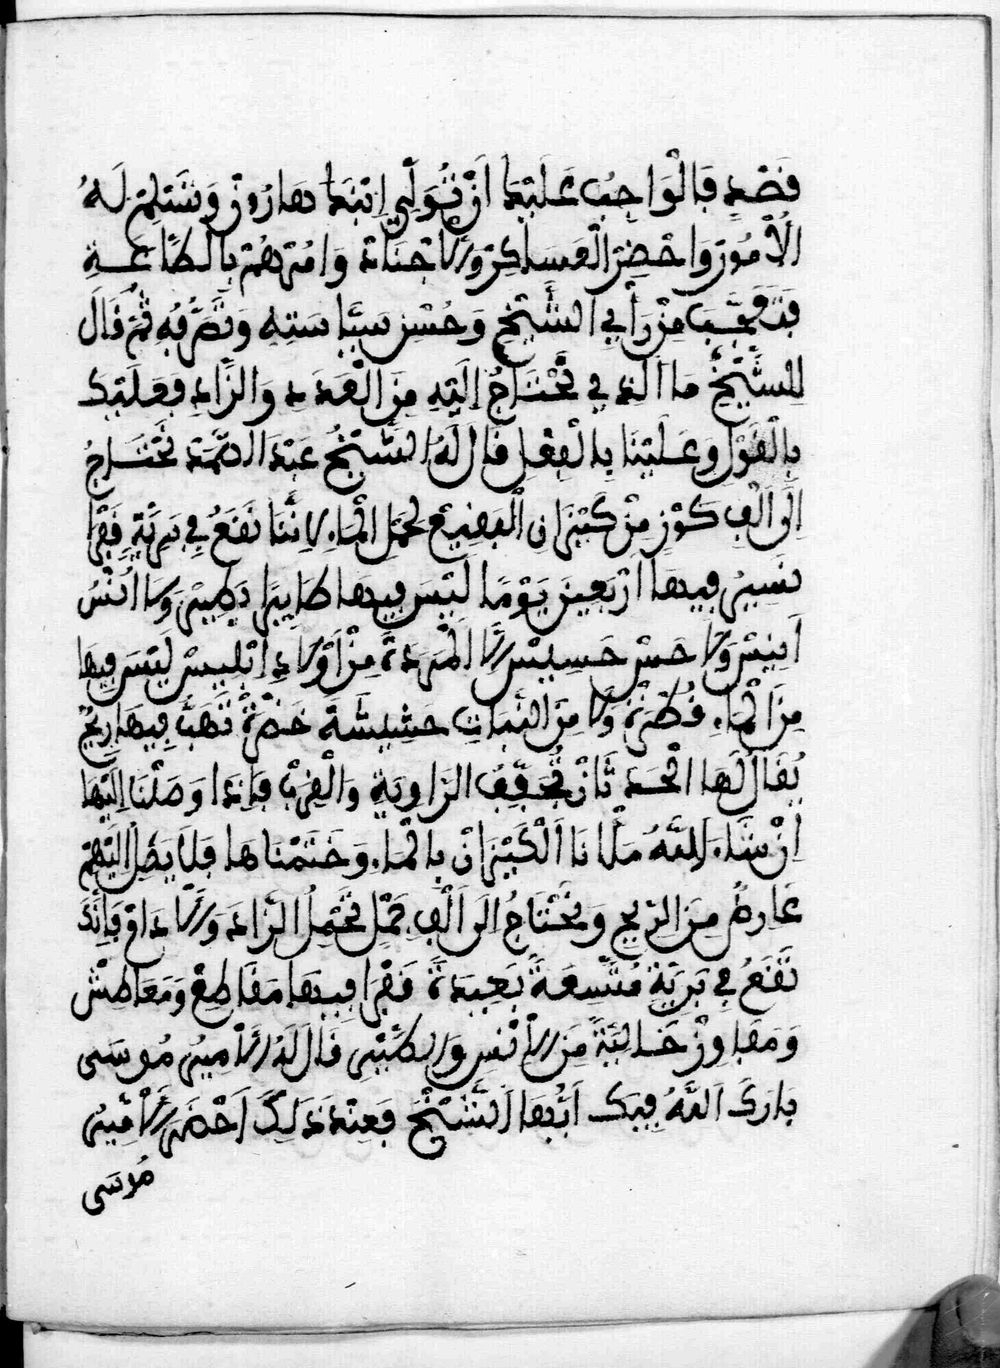 قصد فالواجب عليك ان تولي ابنك هارون وتسلم له
الامور واحضر العساكر والاجناد وامرهم بالطاعة
فتعجب من رأي الشيخ وحسن سياسته وتصرفه ثم قال
للشيخ ما الذي تحتاج اليه من العدد والزاد فعليك
بالقول وعلينا بالفعل قال له الشيخ عبد الصمد نحتاج
الى الف كوز من كيزان الفضيع لحمل الماء لاننا نقع في برية قفرا
نسير فيها اربعين يوما ليس فيها طايرا يطير ولا انس
انيس ولا حس حسيس الا المردة من اولاد ابليس ليس فيها
من الماء قطرة ولا من النبات حشيشة خضرة تهب فيها ريح
يقال لها الحسدثان تجفف الزاوية والقرب فاذا وصلنا اليها
ان شاء الله ملانا الكيزان بالماء وختمناها فلا يصل اليهم
عارض من الريح ونحتاج الى الف جمل تحمل الزاد والاداوق فانك
تقع في برية متسعة بعيدة قفرا فيها مقاطع ومعاطش
ومفاوز خالية من الانس والطير قال له الامير موسى
بارك الله فيك ايها الشيخ فعند ذلك احضر الامير
موسى